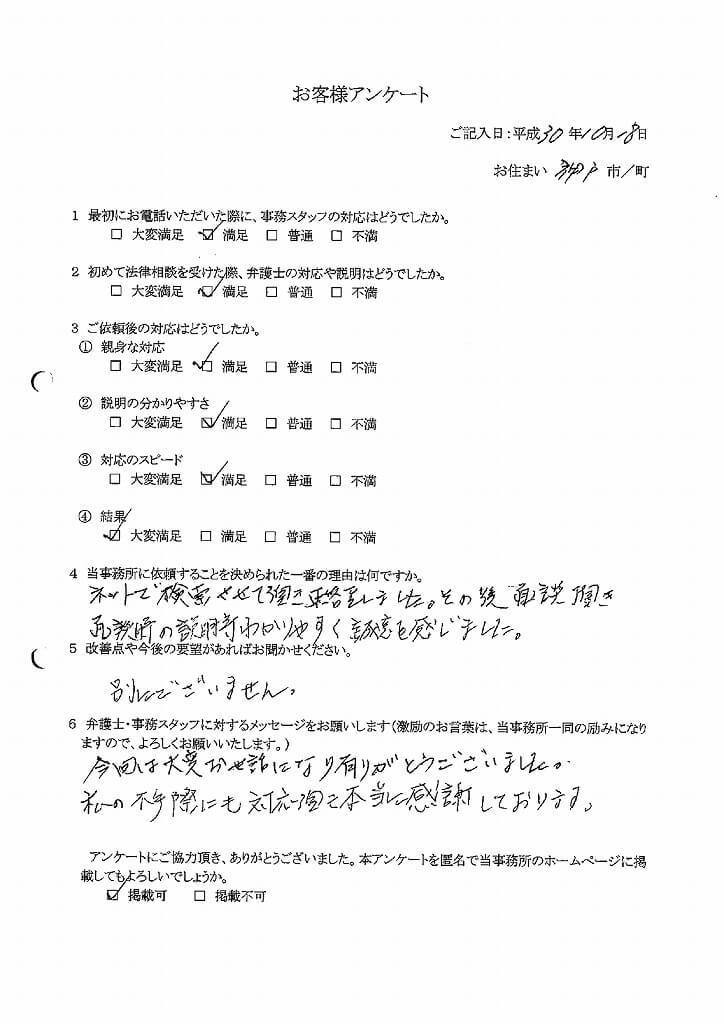 お客様アンケート
ご記入日：平成30年10月18日
お住まい 神戸 市／町
1 最初にお電話いただいた際に、事務スタッフの対応はどうでしたか。
□ 大変満足 ☑ 満足 □ 普通 □ 不満
2 初めて法律相談を受けた際、弁護士の対応や説明はどうでしたか。
□ 大変満足 ☑ 満足 □ 普通 □ 不満
3 ご依頼後の対応はどうでしたか。
① 親身な対応
□ 大変満足 ☑ 満足 □ 普通 □ 不満
② 説明の分かりやすさ
□ 大変満足 ☑ 満足 □ 普通 □ 不満
③ 対応のスピード
□ 大変満足 ☑ 満足 □ 普通 □ 不満
④ 結果
☑ 大変満足 □ 満足 □ 普通 □ 不満
4 当事務所に依頼することを決められた一番の理由は何ですか。
ネットで検索させて頂き連絡しました。その後 面談頂き
面談時の説明等わかりやすく誠意を感じました。
5 改善点や今後の要望があればお聞かせください。
別にございません。
6 弁護士・事務スタッフに対するメッセージをお願いします（激励のお言葉は、当事務所一同の励みになり
ますので、よろしくお願いいたします。）
今回は大変お世話になり有りがとうございました。
私の不手際にも対応頂き本当に感謝しております。
アンケートにご協力頂き、ありがとうございました。本アンケートを匿名で当事務所のホームページに掲
載してもよろしいでしょうか。
☑ 掲載可 □ 掲載不可